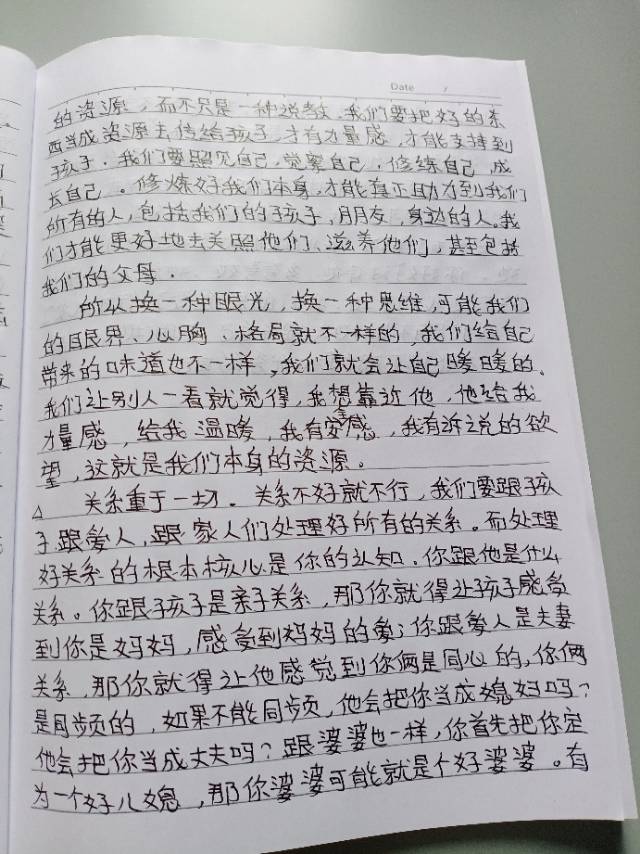 Date /
的资源，而不只是一种说教，我们要把好的东
西当成资源去传给孩子，才有力量感，才能支持到
孩子．我们要照见自己，觉察自己，修练自己，成
长自己。修炼好我们本身，才能真正助力到我们
所有的人，包括我们的孩子，朋友，身边的人．我
们才能更好地去关照他们、滋养他们，甚至包括
我们的父母．
所以换一种眼光，换一种思维，可能我们
的眼界、心胸、格局就不一样的，我们给自己
带来的味道也不一样，我们就会让自己暖暖的．
我们让别人一看就觉得，我想靠近他，他给我
力量感，给我温暖，我有安全感，我有诉说的欲
望，这就是我们本身的资源。
△ 关系重于一切．关系不好就不行，我们要跟孩
子跟爱人，跟家人们处理好所有的关系。而处理
好关系的根本核心是你的认知．你跟他是什么
关系。你跟孩子是亲子关系，那你就得让孩子感觉
到你是妈妈，感觉到妈妈的爱；你跟爱人是夫妻
关系，那你就得让他感觉到你俩是同心的，你俩
是同频的，如果不能同频，他会把你当成媳妇吗？
他会把你当成丈夫吗？跟婆婆也一样，你首先把你定
为一个好儿媳，那你婆婆可能就是个好婆婆。有